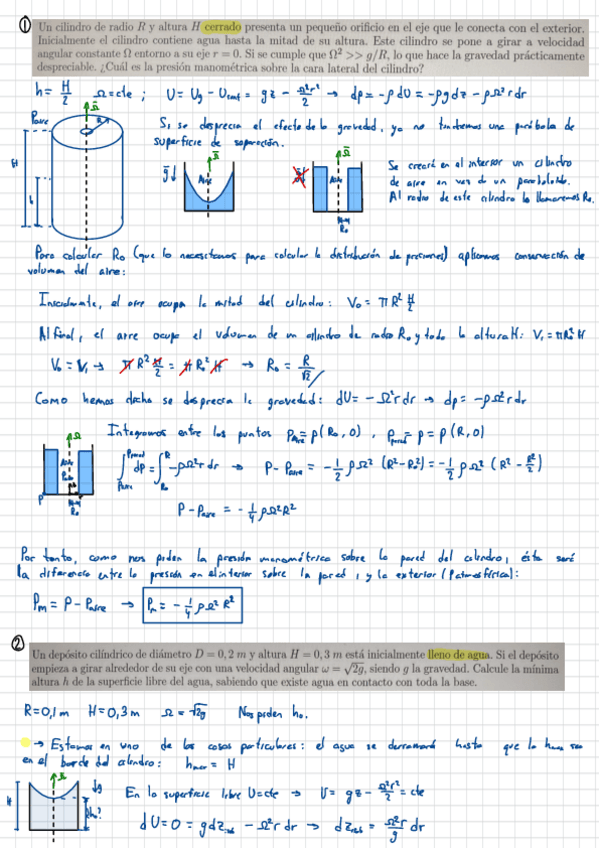 ①
Un cilindro de radio R y altura H cerrado presenta un pequeño orificio en el eje que le conecta con el exterior.
Inicialmente el cilindro contiene agua hasta la mitad de su altura. Este cilindro se pone a girar a velocidad
angular constante Ω entorno a su eje r = 0. Si se cumple que Ω² >> g/R, lo que hace la gravedad prácticamente
despreciable. ¿Cuál es la presión manométrica sobre la cara lateral del cilindro?
h = H/2 Ω = cte ; U = Ug - Ucent = gz - Ω²r²/2 → dp = -ρdU = -ρgdz - ρΩ²rdr
Si se desprecia el efecto de la gravedad, ya no tendremos una parábola de
superficie de separación.
Paire
Ω
R
H
h
g↓
Ω
Aire
g↓
Ω
Aire
R₀
Se creará en el interior un cilindro
de aire en vez de un paraboloide.
Al radio de este cilindro lo llamaremos R₀.
Para calcular R₀ (que lo necesitamos para calcular la distribución de presiones) aplicamos conservación de
volumen del aire:
Inicialmente, el aire ocupa la mitad del cilindro: V₀ = πR² H/2
Al final, el aire ocupa el volumen de un cilindro de radio R₀ y toda la altura H: V₁ = πR₀²H
V₀ = V₁ → πR² H/2 = πR₀² H → R₀ = R/√2
Como hemos dicho se desprecia la gravedad: dU = -Ω²rdr → dp = -ρΩ²rdr
Ω
Aire
Paire
P
R₀
Integramos entre los puntos Paire = p(R₀, 0), Ppared = p = p(R, 0)
∫ Paire Ppared dp = ∫ R₀ R -ρΩ²rdr → P - Paire = -1/2 ρΩ² (R² - R₀²) = -1/2 ρΩ² (R² - R²/2)
P - Paire = -1/4 ρΩ²R²
Por tanto, como nos piden la presión manométrica sobre la pared del cilindro, ésta será
la diferencia entre la presión en el interior sobre la pared, y la exterior (Patmosférica):
Pm = P - Paire → Pm = -1/4 ρΩ²R²
②
Un depósito cilíndrico de diámetro D = 0, 2 m y altura H = 0, 3 m está inicialmente lleno de agua. Si el depósito
empieza a girar alrededor de su eje con una velocidad angular ω = √2g, siendo g la gravedad. Calcule la mínima
altura h de la superficie libre del agua, sabiendo que existe agua en contacto con toda la base.
R = 0,1 m H = 0,3 m Ω = √2g Nos piden h₀.
→ Estamos en uno de los casos particulares: el agua se derramará hasta que la hmax sea
en el borde del cilindro: hmax = H
Ω
↓g
H
h₀?
En la superficie libre U = cte → U = gz - Ω²r²/2 = cte
dU = 0 = gdzsub - Ω²rdr → dzsub = Ω²r/g dr